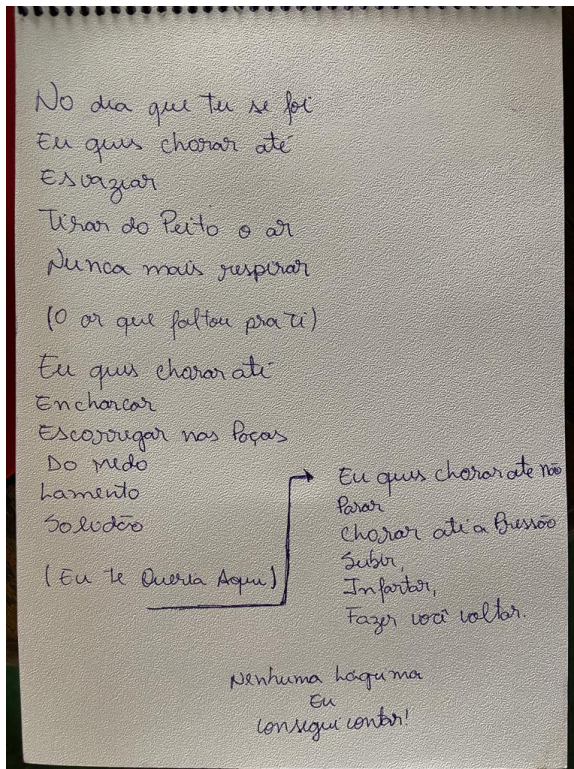 No dia que tu se foi
Eu quis chorar até
Esvaziar
Tirar do Peito o ar
Nunca mais respirar
(O ar que faltou pra ti)
Eu quis chorar até
Encharcar
Escorregar nas Poças
Do medo
Lamento
Solidão
(Eu te Queria Aqui)
Eu quis chorar ate não
Parar
Chorar até a Pressão
Subir,
Infartar,
Fazer você voltar.
Nenhuma Lágrima
Eu
consegui contar!